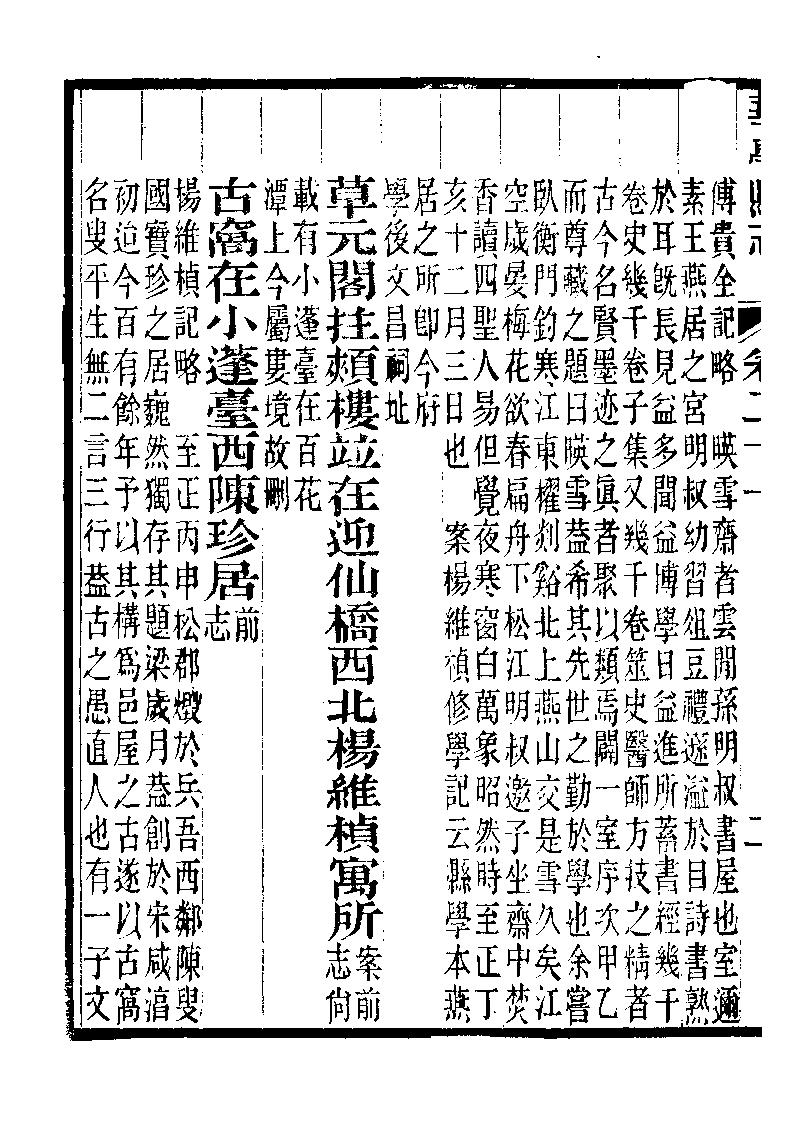 華亭縣志 卷二十一 二
傅貴全記略　暎雪齋者雲間孫明叔書屋也室邇
素王燕居之宮明叔幼習俎豆禮遜溢於目詩書熟
於耳旣長見益多聞益博學日益進所蓄書經幾千
卷史幾千卷子集又幾千卷筮史醫師方技之精者
古今名賢墨迹之眞者聚以類焉闢一室序次甲乙
而尊藏之題曰暎雪葢希其先世之勤於學也余嘗
臥衡門釣寒江東櫂剡谿北上燕山交是雪久矣江
空歲晏梅花欲春扁舟下松江明叔邀子坐齋中焚
香讀四聖人易但覺夜寒窗白萬象昭然時至正丁
亥十二月三日也　案楊維禎修學記云縣學本燕
居之所卽今府
學後文昌祠址
草元閣拄頰樓竝在迎仙橋西北楊維楨寓所案前志尙
載有小蓬臺在百花
潭上今屬婁境故刪
古窩在小蓬臺西陳珍居前志
楊維楨記略　至正丙申松郡燬於兵吾西鄰陳叟
國寶珍之居巍然獨存其題梁歲月葢創於宋咸淳
初迨今百有餘年予以其構爲邑屋之古遂以古窩
名叟平生無二言三行葢古之愚直人也有一子文